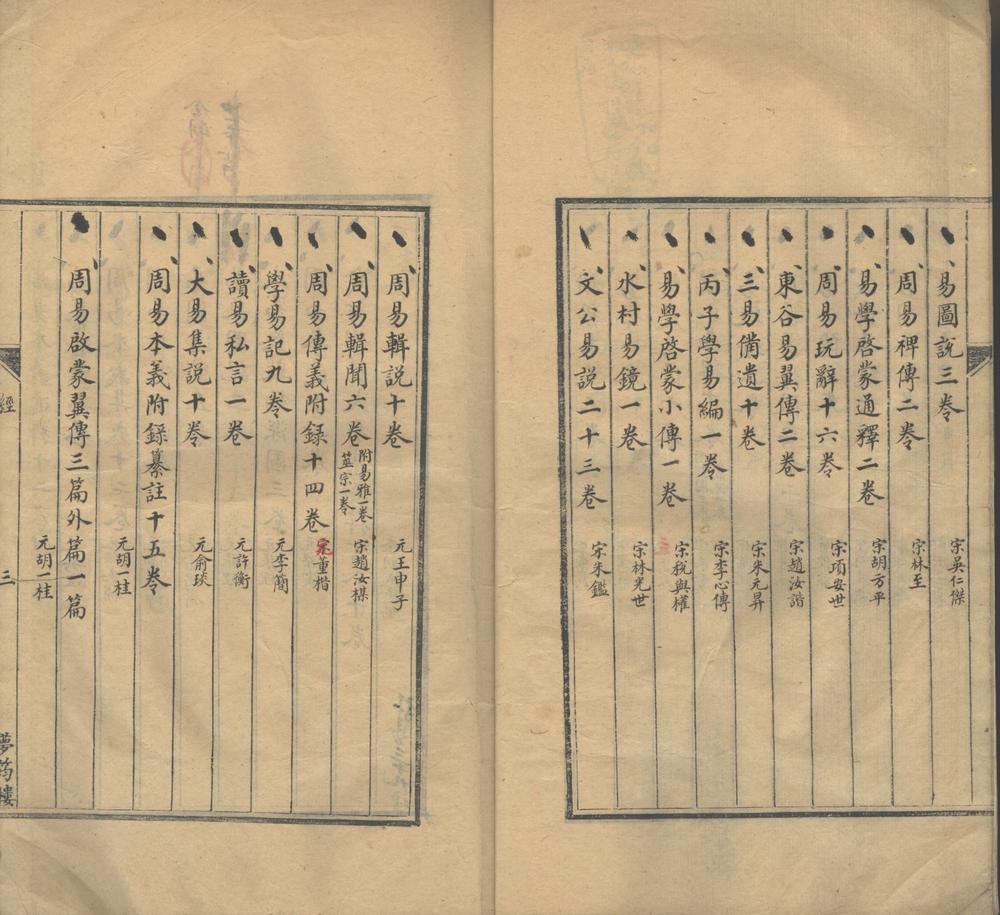 易圖說三卷 宋吳仁傑
周易裨傳二卷 宋林至
易學啓蒙通釋二卷 宋胡方平
周易玩辭十六卷 宋項安世
東谷易翼傳二卷 宋趙汝諧
三易備遺十卷 宋朱元昇
丙子學易編一卷 宋李心傳
易學啓蒙小傳一卷 宋稅與權
水村易鏡一卷 宋林光世
文公易説二十三卷 宋朱鑑
周易輯説十卷 元王申子
周易輯聞六卷 附易雅一卷 筮宗一卷 宋趙汝楳
周易傳義附録十四卷 宋董楷
學易記九卷 元李簡
讀易私言一卷 元許衡
大易集説十卷 元俞琰
周易本義附録纂註十五卷 元胡一桂
周易啟蒙翼傳三篇外篇一篇 元胡一桂
經
三
夢筠樓